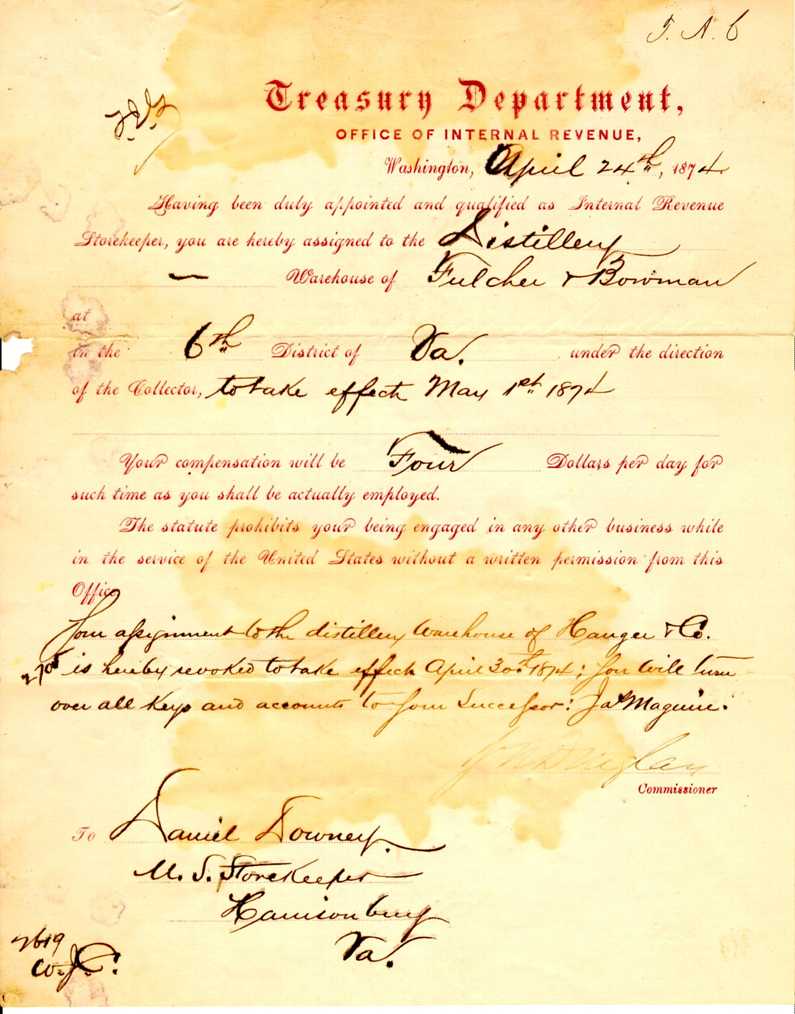 J. A. C
Treasury Department,
OFFICE OF INTERNAL REVENUE,
Washington, April 24th, 1874
Having been duly appointed and qualified as Internal Revenue
Storekeeper, you are hereby assigned to the Distillery
— Warehouse of Fulcher & Bowman
at
in the 6th District of Va. under the direction
of the Collector, to take effect May 1st 1874
Your compensation will be Four Dollars per day for
such time as you shall be actually employed.
The statute prohibits your being engaged in any other business while
in the service of the United States without a written permission from this
Office.
Your assignment to the distillery Warehouse of Hanger & Co.
is hereby revoked to take effect April 30th 1874; You will turn
over all keys and accounts to your Successor: Jas Maguire.
Commissioner
To Daniel Downey.
U. S. Storekeeper
Harrisonburg
Va.
2619